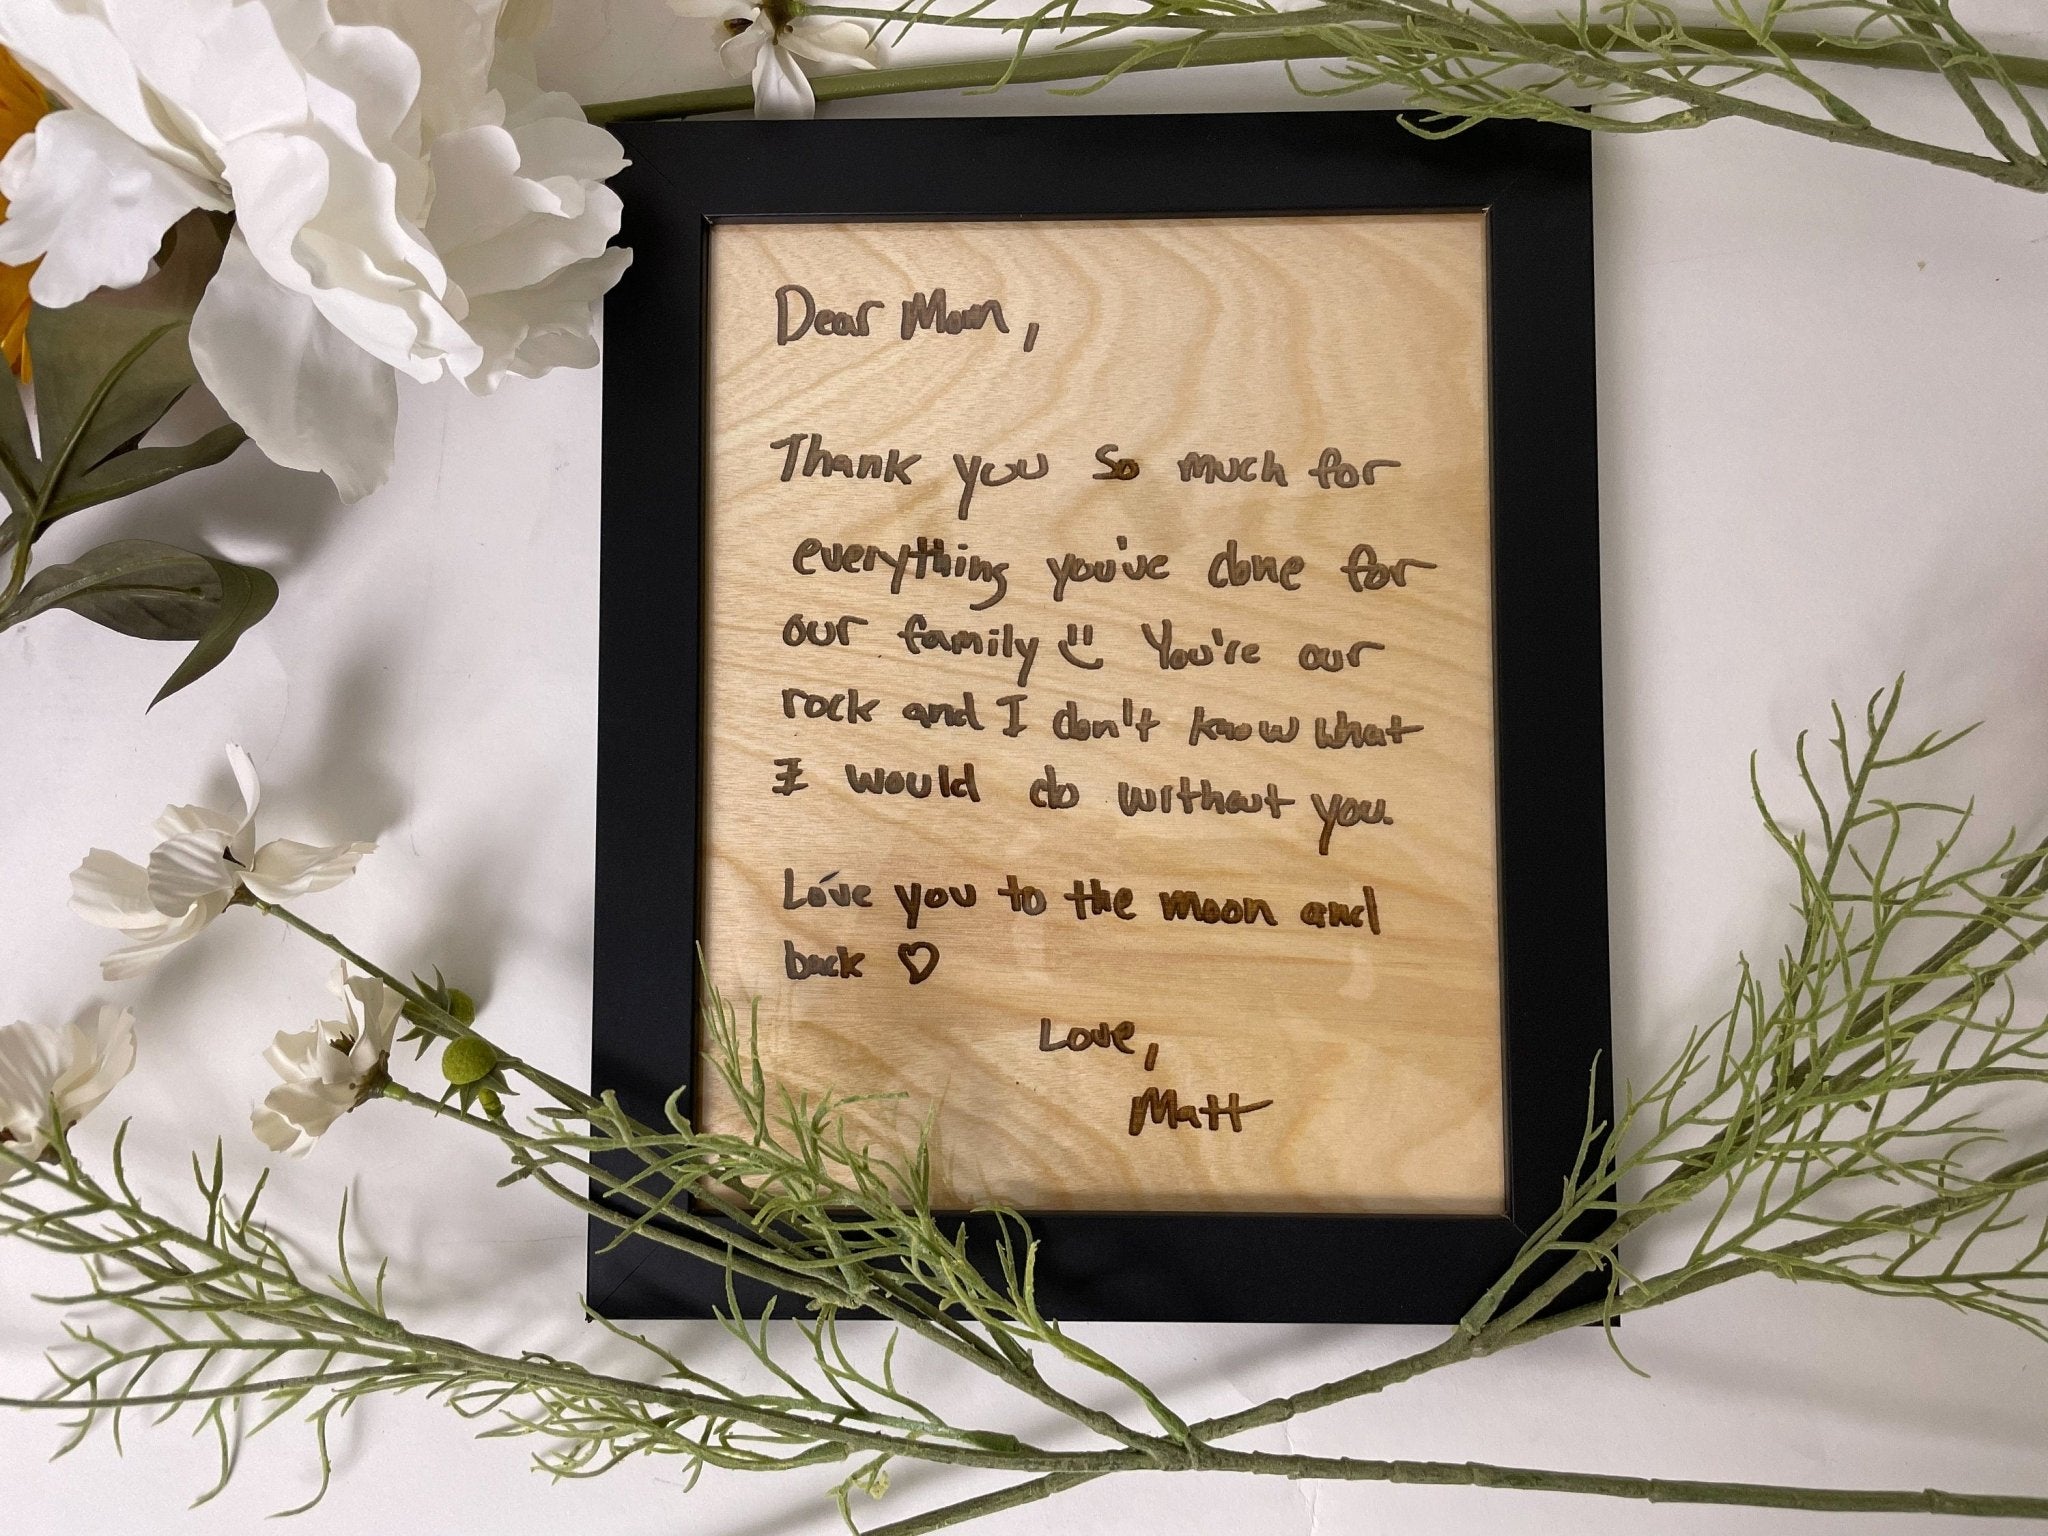 Dear Mom,
Thank you so much for
everything you've done for
our family :) You're our
rock and I don't know what
I would do without you.
Love you to the moon and
back ♡
Love,
Matt